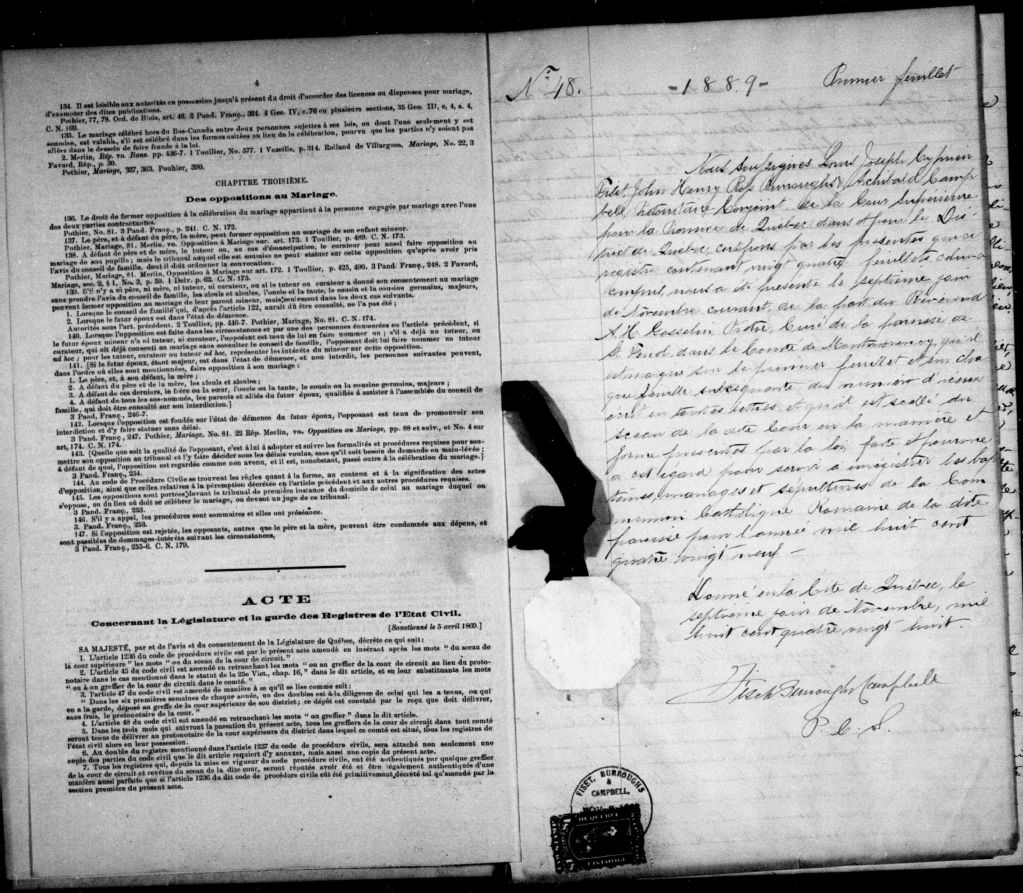 4
134. Il est loisible aux autorités en possession jusqu'à présent du droit d'accorder des licences ou dispenses pour mariage,
d'exempter des dites publications.
Pothier, 77, 78. Ord. de Blois, art. 40. 2 Pand. Franç., 324. 4 Geo. IV, c. 76 en plusieurs sections, 35 Geo. III, c, 4, s. 4,
C. N. 169.
135. Le mariage célébré hors du Bas-Canada entre deux personnes sujettes à ses lois, ou dont l'une seulement y est
soumise, est valable, s'il est célébré dans les formes usitées au lieu de la célébration, pourvu que les parties n'y soient pas
allées dans le dessein de faire fraude à la loi.
2. Merlin, Rép. vo. Bans. pp. 436-7. 1 Toullier, No. 577. 1 Vazeille, p. 314. Rolland de Villargues, Mariage, No. 22, 3
Favard, Rép., p. 39.
Pothier, Mariage, 327, 363. Pouhier, 399.
CHAPITRE TROISIÈME.
Des oppositions au Mariage.
136. Le droit de former opposition à la célébration du mariage appartient à la personne engagée par mariage avec l'une
des deux parties contractantes.
Pothier, No. 81. 3 Pand. Franç., p. 241. C. N. 172.
137. Le père, et à défaut du père, la mère, peut former opposition au mariage de son enfant mineur.
Pothier, Mariage, 81. Merlin, vo. Opposition à Mariage sur art. 173. 1 Toullier, p. 489. C. N. 173.
138. A défaut de père et de mère, le tuteur ou au cas d'émancipation, le curateur peut aussi faire opposition au
mariage de son pupille ; mais le tribunal auquel elle est soumise ne peut statuer sur cette opposition qu'après avoir pris
l'avis du conseil de famille, dont il doit ordonner la convocation.
Pothier, Mariage, 81. Merlin, Opposition à Mariage sur art. 172. 1 Toullier, p. 425, 490. 3 Pand. Franç., 248. 2 Favard,
Mariage, sec. 2, § 1, No. 3, p. 59. 1 Delv. p. 62. C. N. 175.
139. S'il n'y a ni père, ni mère, ni tuteur, ni curateur, ou si le tuteur ou curateur a donné son consentement au mariage
sans prendre l'avis du conseil de famille, les aïeuls et aïeules, l'oncle et la tante, le cousin et la cousine germains, majeurs,
peuvent former opposition au mariage de leur parent mineur, mais seulement dans les deux cas suivants.
1. Lorsque le conseil de famille qui, d'après l'article 122, aurait dû être consulté, ne l'a pas été ;
2. Lorsque le futur époux est dans l'état de démence.
Autorités sous l'art. précédent. 2 Toullier, pp. 446-7. Pothier, Mariage, No. 81. C. N. 174.
140. Lorsque l'opposition est faite dans les circonstances et par une des personnes énumérées en l'article précédent, si
le futur époux mineur n'a ni tuteur, ni curateur, l'opposant est tenu de lui en faire nommer un ; s'il a déjà un tuteur, ou
curateur, qui ait déjà consenti au mariage sans consulter le conseil de famille, l'opposant doit lui faire nommer un tuteur
ad hoc ; pour les tuteur, curateur ou tuteur ad hoc, représenter les intérêts du mineur sur cette opposition.
141. [Si le futur époux, étant majeur, est dans l'état de démence, et non interdit, les personnes suivantes peuvent,
dans l'ordre où elles sont mentionnées, faire opposition à son mariage :
1. Le père, et, à son défaut, la mère ;
2. A défaut du père et de la mère, les aïeuls et aïeules ;
3. A défaut de ces derniers, le frère ou la sœur, l'oncle ou la tante, le cousin ou la cousine germains, majeurs ;
4. A défaut de tous les sus-nommés, les parents et alliés du futur époux, qualifiés à assister à l'assemblée du conseil de
famille, qui doit être consulté sur son interdiction.]
3 Pand. Franç., 246-7.
142. Lorsque l'opposition est fondée sur l'état de démence du futur époux, l'opposant est tenu de promouvoir son
interdiction et d'y faire statuer sans délai.
3 Pand. Franç., 247. Pothier, Mariage, No. 81. 22 Rép. Merlin, vo. Opposition au Mariage, pp. 88 et suiv., et No. 4 sur
art, 174. C. N. 174.
143. [Quelque soit la qualité de l'opposant, c'est à lui à adopter et suivre les formalités et procédures requises pour sou-
mettre son opposition au tribunal et l'y faire décider sous les délais voulus, sans qu'il soit besoin de demande en main-levée ;
à défaut de quoi, l'opposition est regardée comme non avenu, et il est, nonobstant, passé outre à la célébration du mariage.]
3 Pand. Franç., 254.
144. Au code de Procédure Civile se trouvent les règles quant à la forme, au contenu et à la signification des actes
d'opposition, ainsi que celles relatives à la péremption décrétée en l'article précédent et aux autres procédures requises.
145. Les oppositions sont portées devant le tribunal de première instance du domicile de celui au mariage duquel on
s'oppose, ou du lieu où doit se célébrer le mariage, ou devant un juge de ce tribunal.
3 Pand. Franç., 253.
146. S'il y a appel, les procédures sont sommaires et elles ont préséance.
3. Pand. Franç., 253.
147. Si l'opposition est rejetée, les opposants, autres que le père et la mère, peuvent être condamnés aux dépens, et
sont passibles de dommages-intérêts suivant les circonstances,
3 Pand. Franç., 255-6. C. N. 179.
ACTE
Concernant la Législature et la garde des Registres de l'Etat Civil.
[Sanctionné le 5 avril 1869.]
SA MAJESTÉ, par et de l'avis et du consentement de la Législature de Québec, décrète ce qui suit:
1. L'article 1236 du code de procédure civile est par le présent acte amendé en insérant après les mots " du sceau de
la cour supérieure " les mots " ou du sceau de la cour de circuit."
2. L'article 45 du code civil est amendé en retranchant les mots " ou au greffier de la cour de circuit au lieu du proto-
notaire dans le cas mentionné dans le statut de la 25e Vict., chap. 16," dans le dit article, et en leur substituant les mots
" ou à un greffier de la cour de circuit dans le comté."
3. l'article 47 du code civil est amendé de manière à ce qu'il se lise comme suit:
" Dans les six premières semaines de chaque année, un des doubles est à la diligence de celui qui les a tenus, ou qui
en a la garde, déposé au greffe de la cour supérieure de son district ; ce dépôt est constaté par le reçu que doit délivrer,
sans frais, le protonotaire de la cour. "
4. L'article 48 du code civil est amendé en retranchant les mots " ou greffier " dans le dit article.
5. Dans les trois mois qui suivront la passation du présent acte, tous les greffiers de la cour de circuit dans tout comté
seront tenus de délivrer au protonotaire de la cour supérieure du district dans lequel ce comté est situé, tous les registres de
l'état civil alors en leur possession.
6. Au double du registre mentionné dans l'article 1237 du code de procédure civile, sera attaché non seulement une
copie des parties du code civil que le dit article requiert d'y annexer, mais aussi une copie du présent acte.
7. Tous les registres qui, depuis la mise en vigueur du code procédure civile, ont été authentiqués par quelque greffier
de la cour de circuit et revêtus du sceau de la dite cour, seront réputés avoir été et être légalement authentiqués d'une
manière aussi parfaite que si l'article 1236 du dit code de procédure civile eût été primitivement décrété tel qu'amendé par la
section première du présent acte.
No. 48. - 1889 - Premier feuillet
Nous soussignés Louis Joseph Cyprien
Fiset, John Henry Ross Burroughs & Archibald Camp
bell, Protonotaire Conjoint de la Cour Supérieure
pour la Province de Québec dans et pour le Dis
trict de Québec certifions par les présentes que ce
registre contenant vingt quatre feuillets celui-ci
compris, nous a été présenté le septième jour
de Novembre courant, de la part du Révérend
A. H. Gosselin Prêtre, Curé de la paroisse de
St. Féréol dans le Comté de Montmorency, qu'il
est marqué sur le premier feuillet et sur cha
que feuille subséquente du numéro d'icelui
écrit en toutes lettres et qu'il est scellé du
sceau de la dite Cour en la manière et
forme prescrites par la loi, faite et pourvue
a cet égard pour servir à enregistrer les bap
têmes, mariages et sépultures de la Com
munion Catholique Romaine de la dite
paroisse pour l'année mil huit cent
quatre vingt neuf -
Donné en la Cité de Québec, le
septième jour de Novembre, mil
huit cent quatre vingt huit.
Fiset Burroughs Campbell
P. C. S.
FISET, BURROUGHS
&
CAMPBELL.